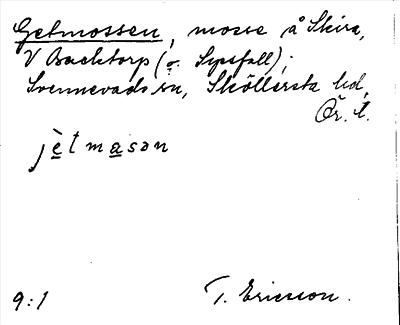 Getmossen, mosse å Skira,
V Backtorp (o. Sypsfall);
Svennevads sn, Sköllersta hd,
Ör. l.
jètmasən
9:1 T. Ericsson.